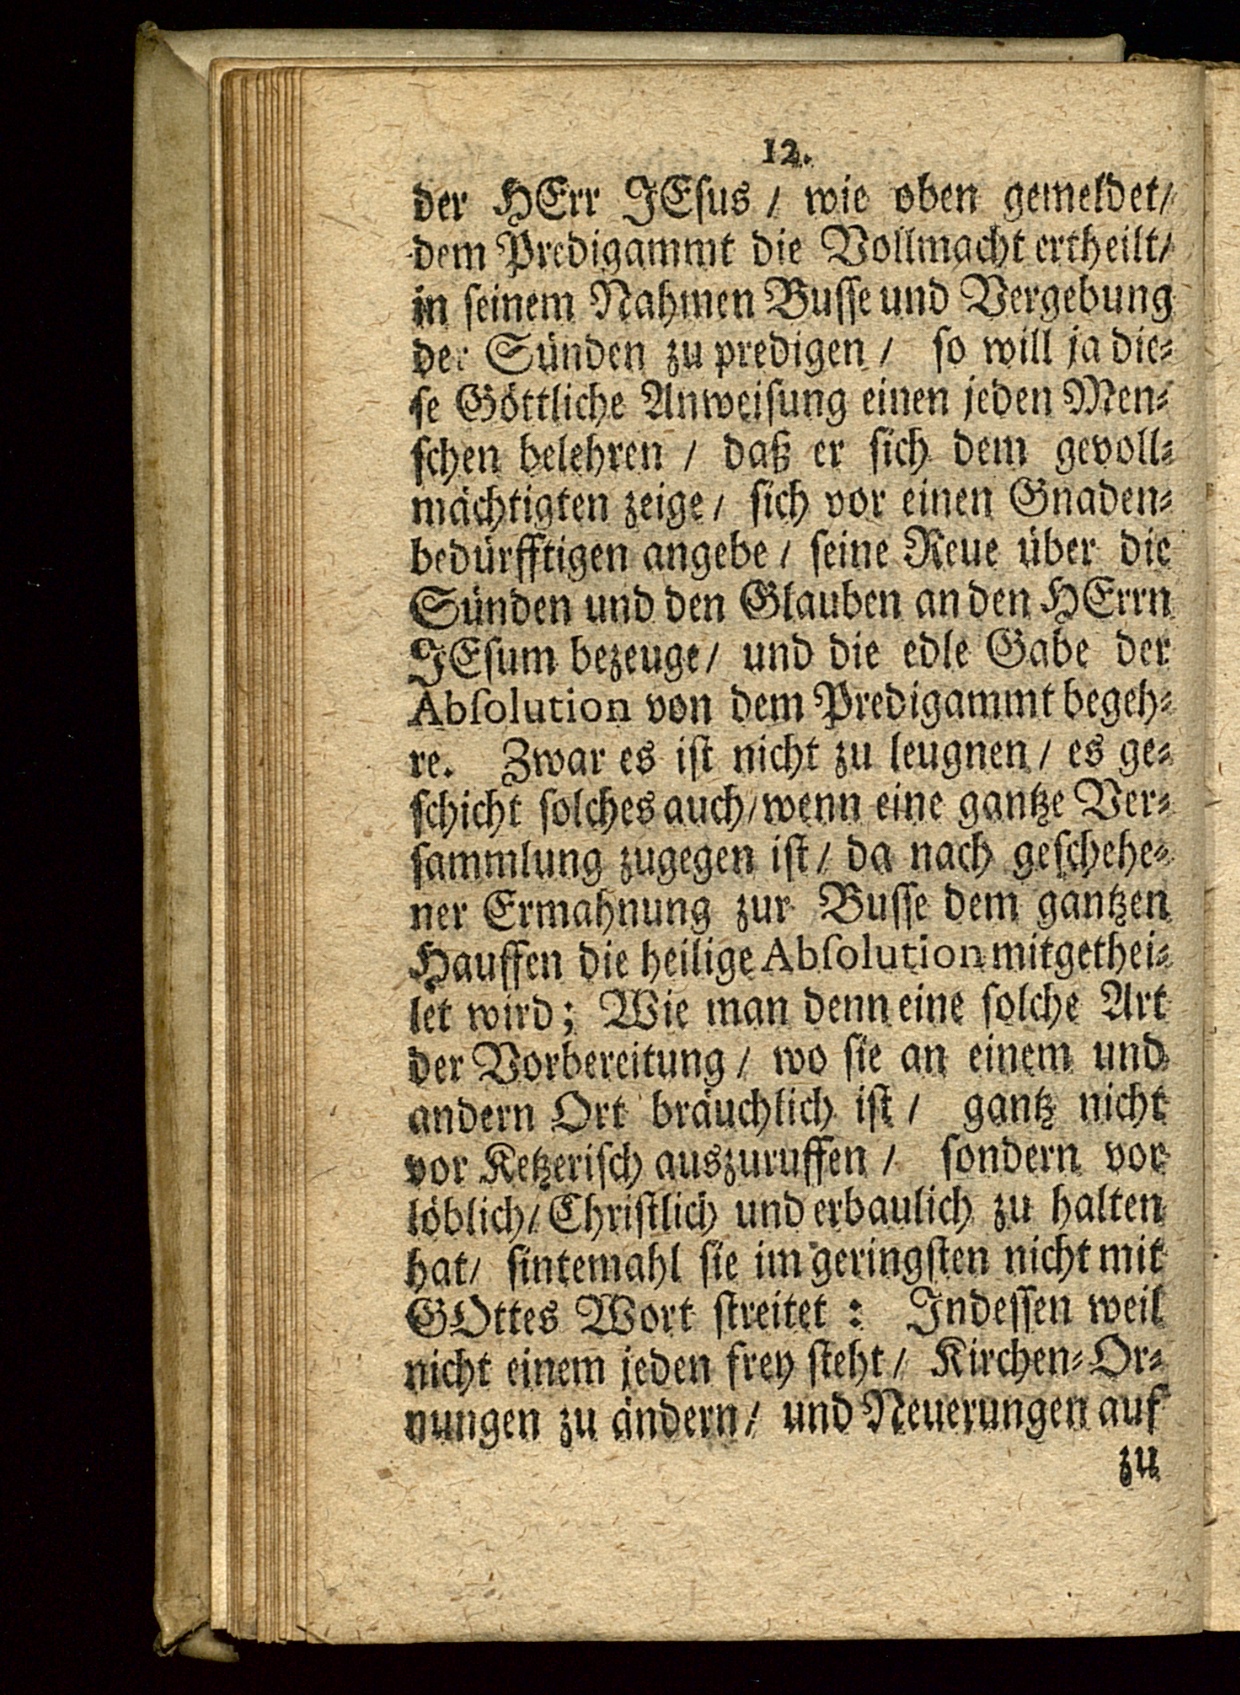 12.
der HErr JEſus / wie oben gemeldet/
dem Predigammt die Vollmacht ertheilt/
in ſeinem Nahmen Buſſe und Vergebung
der Sünden zu predigen / ſo will ja die⸗
ſe Göttliche Anweiſung einen jeden Men⸗
ſchen belehren / daß er ſich dem gevoll⸗
mächtigten zeige / ſich vor einen Gnaden⸗
bedürfftigen angebe / ſeine Reue über die
Sünden und den Glauben an den HErrn
JEſum bezeuge/ und die edle Gabe der
Abſolution von dem Predigammt begeh⸗
re. Zwar es iſt nicht zu leugnen / es ge⸗
ſchicht ſolches auch/wenn eine gantze Ver⸗
ſammlung zugegen iſt/ da nach geſchehe⸗
ner Ermahnung zur Buſſe dem gantzen
Hauffen die heilige Abſolution mitgethei⸗
let wird; Wie man denn eine ſolche Art
der Vorbereitung / wo ſie an einem und
andern Ort bräuchlich iſt / gantz nicht
vor Ketzeriſch auszuruffen / ſondern vor
löblich/ Chriſtlich und erbaulich zu halten
hat/ ſintemahl ſie im geringſten nicht mit
GOttes Wort ſtreitet : Indeſſen weil
nicht einem jeden frey ſteht / Kirchen⸗Or⸗
nungen zu ändern / und Neuerungen auf
zu